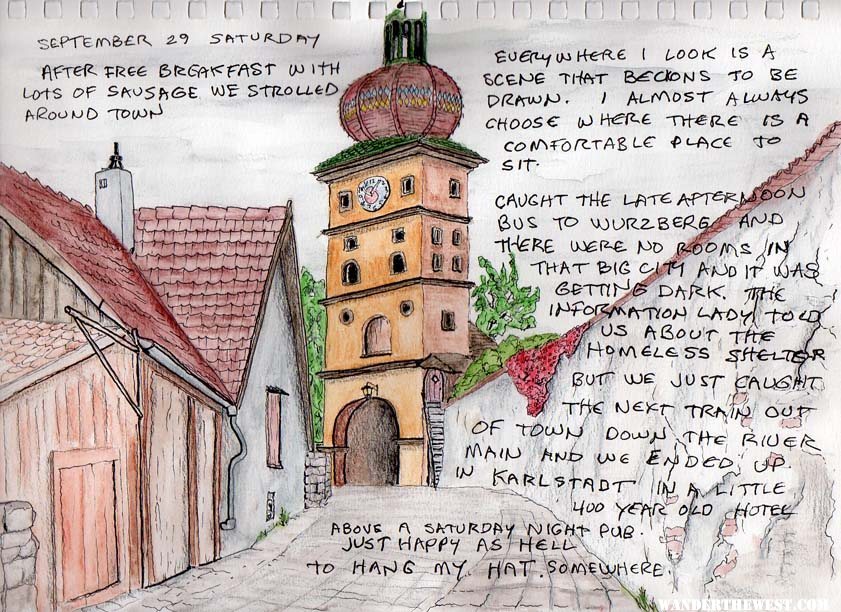 SEPTEMBER 29 SATURDAY
AFTER FREE BREAKFAST WITH
LOTS OF SAUSAGE WE STROLLED
AROUND TOWN
EVERYWHERE I LOOK IS A
SCENE THAT BECKONS TO BE
DRAWN. I ALMOST ALWAYS
CHOOSE WHERE THERE IS A
COMFORTABLE PLACE TO
SIT.
CAUGHT THE LATE AFTERNOON
BUS TO WURZBERG AND
THERE WERE NO ROOMS IN
THAT BIG CITY AND IT WAS
GETTING DARK. THE
INFORMATION LADY TOLD
US ABOUT THE
HOMELESS SHELTER
BUT WE JUST CAUGHT
THE NEXT TRAIN OUT
OF TOWN DOWN THE RIVER
MAIN AND WE ENDED UP
IN KARLSTADT IN A LITTLE
400 YEAR OLD HOTEL
ABOVE A SATURDAY NIGHT PUB.
JUST HAPPY AS HELL
TO HANG MY HAT SOMEWHERE.
WANDERTHEWEST.COM